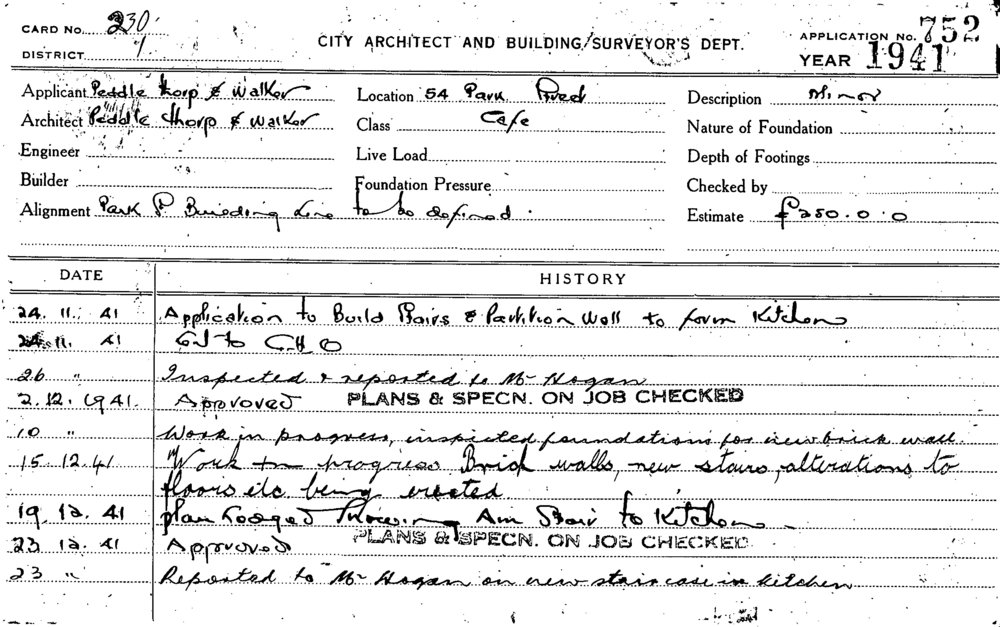 CARD No. 230
DISTRICT 1
CITY ARCHITECT AND BUILDING SURVEYOR'S DEPT.
APPLICATION No. 752
YEAR 1941
Applicant Peddle Thorp & Walker
Architect Peddle Thorp & Walker
Engineer
Builder
Alignment Park St Building Line to be defined.
Location 54 Park
Class Cafe
Live Load
Foundation Pressure
Description Minor
Nature of Foundation
Depth of Footings
Checked by
Estimate £250.0.0
DATE HISTORY
24. 11. 41 Application to Build Stairs & Partition Wall to form Kitchen
24. 11. 41 to C H O
26 " Inspected & reported to Mr Hogan
2.12.1941. Approved PLANS & SPECN. ON JOB CHECKED
10 " Work in progress, inspected foundations for new brick wall.
15.12.41 Work in progress Brick walls, new stairs, alterations to
floors etc being erected
19. 12. 41 plan Lodged Showing Stair to Kitchen
23 12. 41 Approved PLANS & SPECN. ON JOB CHECKED
23 " Reported to Mr Hogan on new staircase in kitchen